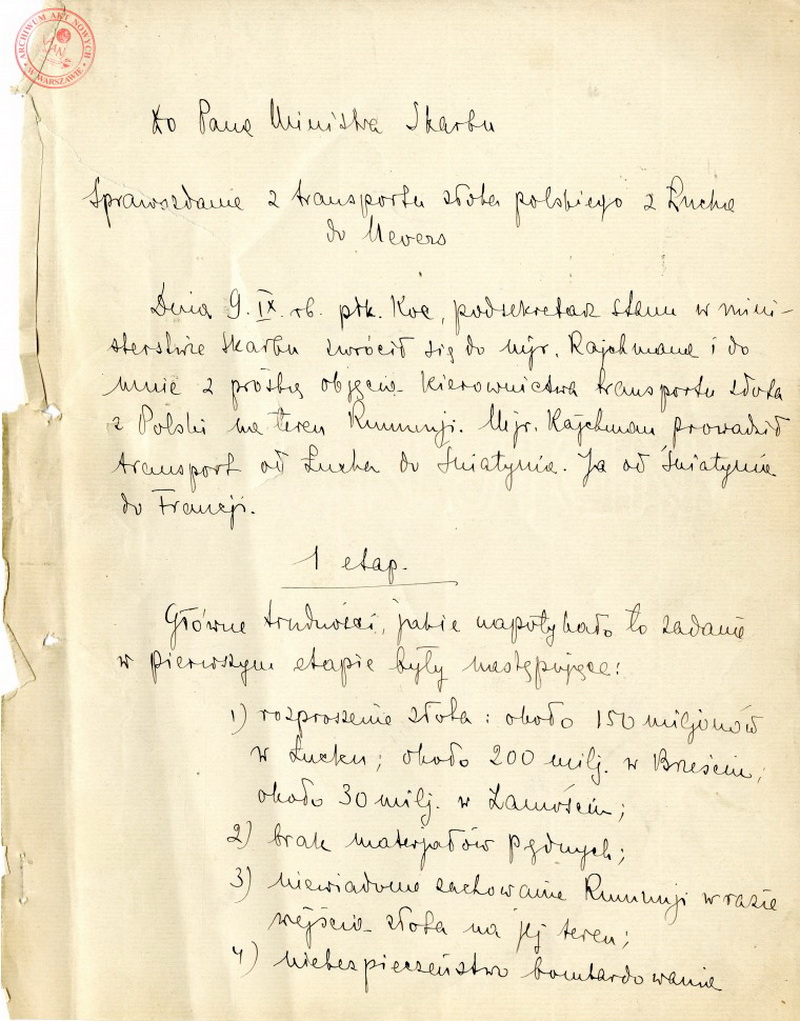 ARCHIWUM AKT NOWYCH
W WARSZAWIE
AAN
Do Pana Ministra Skarbu
Sprawozdanie z transportu złota polskiego z Łucka
do Nevers
Dnia 9.IX. rb. płk. Koc, podsekretarz stanu w mini-
sterstwie Skarbu zwrócił się do mjr. Rajchmana i do
mnie z prośbą objęcia kierownictwa transportu złota
z Polski na teren Rumunji. Mjr. Rajchman prowadził
transport od Łucka do Śniatynia. Ja od Śniatynia
do Francji.
1 etap.
Główne trudności, jakie napotykało to zadanie
w pierwszym etapie były następujące:
1) rozproszenie złota: około 150 miljonów
w Łucku; około 200 milj. w Brześciu;
około 30 milj. w Zamościu;
2) brak materjałów pędnych;
3) niewiadome zachowanie Rumunji w razie
wejścia złota na jej teren;
4) niebezpieczeństwo bombardowania